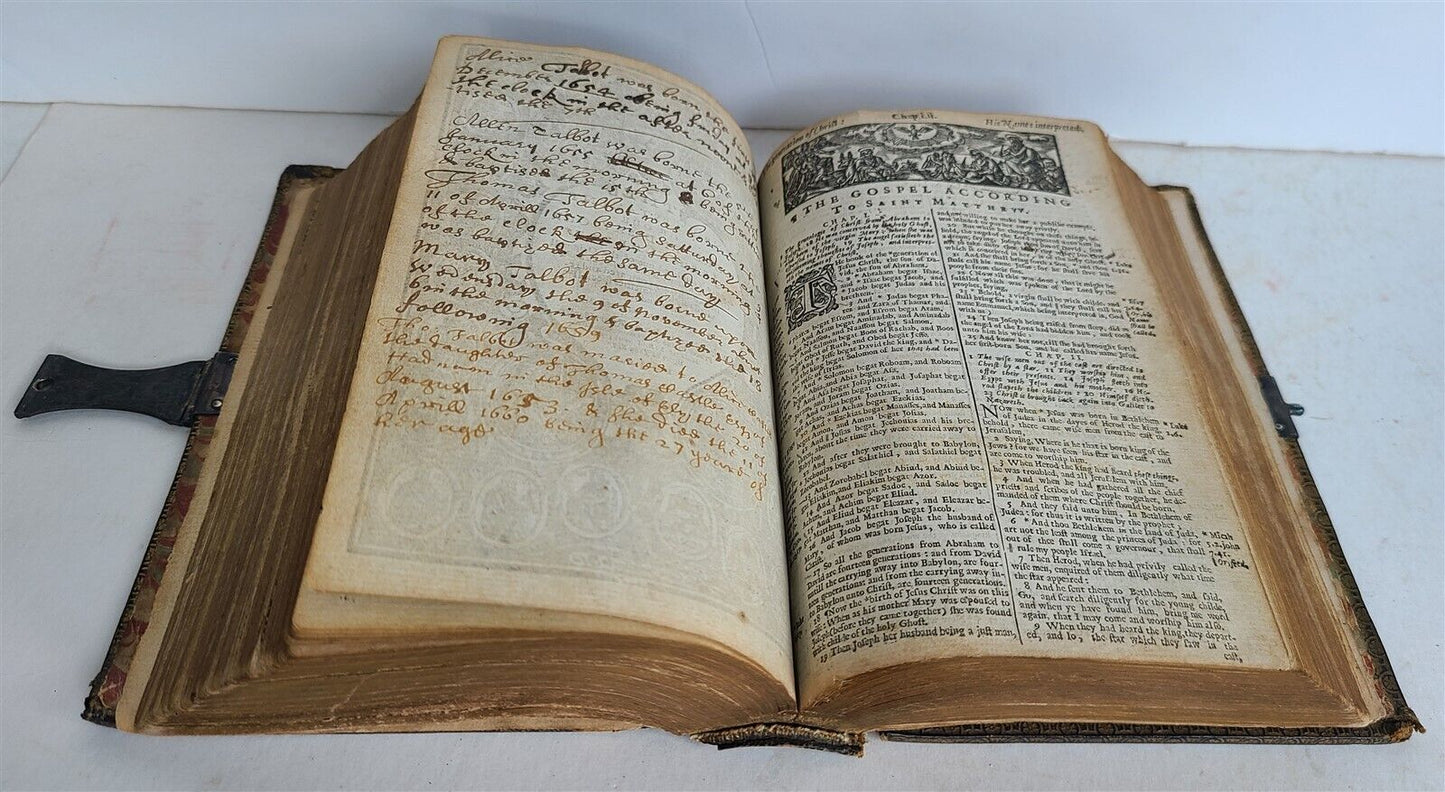 Talbot was born the
December 1654 being
the clock in the after noon
tised the 9th
Allen Talbot was borne the
January 1655
clock in the morning
& baptised the 15th
Thomas Talbot was borne the
11 of Aprill 1657 being Satturday
of the clock in the morning &
was baptized the same day
Mary Talbot was borne upon
Wedensday the 9 of november
in the morning & baptized the 18
following 1659
Talbot was maried to
the daughter of Thomas Castle
in the Isle of Ely the 20 of
August 1653 & she died the 11
Aprill 1660 being the 27 yeare of
her age
Chap. i. ii.
His Name interpreted.
¶ THE GOSPEL ACCORDING
TO SAINT MATTHEW.
CHAP. I.
of Christ from Abraham to
Joseph. 18 He was conceived by the holy Ghost,
THe book of the *generation of
Jesus Christ, the son of Da-
vid, the son of Abraham.
2 * Abraham begat Isaac,
and * Isaac begat Jacob, and
* Jacob begat Judas and his
brethren.
3 And * Judas begat Pha-
res and Zara of Thamar, and
* Phares begat Esrom, and Esrom begat Aram;
4 And Aram begat Aminadab, and Aminadab
begat Naasson, and Naasson begat Salmon,
5 And Salmon begat Boos of Rachab, and Boos
begat Obed of Ruth, and Obed begat Jesse.
6 And * Jesse begat David the king, and * Da-
vid the king begat Solomon of her that had been
7 And * Solomon begat Roboam, and Roboam
begat Abia, and Abia begat Asa,
8 And Asa begat Josaphat, and Josaphat begat
Joram, and Joram begat Ozias.
9 And Ozias begat Joatham, and Joatham be-
gat Achaz, and Achaz begat Ezekias,
10 And * Ezekias begat Manasses, and Manasses
begat Amon, and Amon begat Josias.
11 And Josias begat Jechonias and his bre-
thren, about the time they were carried away to
Babylon.
12 And after they were brought to Babylon,
Jechonias begat Salathiel, and Salathiel begat
13 And Zorobabel begat Abiud, and Abiud be-
gat Eliakim, and Eliakim begat Azor.
14 And Azor begat Sadoc, and Sadoc begat
Achim, and Achim begat Eliud.
15 And Eliud begat Eleazar, and Eleazar be-
gat Matthan, and Matthan begat Jacob.
16 And Jacob begat Joseph the husband of
Mary, of whom was born Jesus, who is called
Christ.
17 So all the generations from Abraham to
David are fourteen generations: and from David
until the carrying away into Babylon, are four-
teen generations: and from the carrying away in-
to Babylon unto Christ, are fourteen generations.
18 ¶ Now the * birth of Jesus Christ was on this
wise: When as his mother Mary was espoused to
Joseph (before they came together) she was found
with childe of the holy Ghost.
19 Then Joseph her husband being a just man,
and not willing to make her a publike example,
was minded to put her away privily.
20 But while he thought on these things,
21 And she shall bring forth a Son, and thou
shalt call his name Jesus: for he shall save his
people from their sins.
22 (Now all this was done, that it might be
fulfilled which was spoken of the Lord by the
prophet, saying,
23 * Behold, a virgin shall be with childe, and
shall bring forth a Son, and they shall call his
name Emmanuel, which being interpreted is, God
with us)
24 Then Joseph being raised from sleep, did as
the angel of the Lord had bidden him, and took
unto him his wife:
25 And knew her not, till she had brought forth
her first-born Son, and he called his name Jesus.
CHAP. II.
1 The wise men out of the east are directed to
Christ by a star. 11 They worship him, and
offer their presents. 14 Joseph fleeth into
Egypt with Jesus and his mother. 16 Herod
slayeth the children: 20 Himself dieth.
23 Christ is brought back again into Galilee to
Nazareth.
NOw when * Jesus was born in Bethlehem
of Judea in the dayes of Herod the king,
behold, there came wise men from the east to
Jerusalem,
2 Saying, Where is he that is born king of the
Jews? for we have seen his star in the east, and
are come to worship him.
3 When Herod the king had heard these things,
he was troubled, and all Jerusalem with him.
4 And when he had gathered all the chief
priests and scribes of the people together, he de-
manded of them where Christ should be born.
5 And they said unto him, In Bethlehem of
Judea: for thus it is written by the prophet;
6 * And thou Bethlehem in the land of Juda,
art not the least among the princes of Juda: for
out of thee shall come a governour, that shall
rule my people Israel.
7 Then Herod, when he had privily called the
wise men, enquired of them diligently what time
the star appeared:
8 And he sent them to Bethlehem, and said,
Go, and search diligently for the young childe,
and when ye have found him, bring me word
again, that I may come and worship him also.
9 When they had heard the king, they depart-
ed, and lo, the star which they saw in the
east,
* Luke
2.6.
* Micah
5.2. john